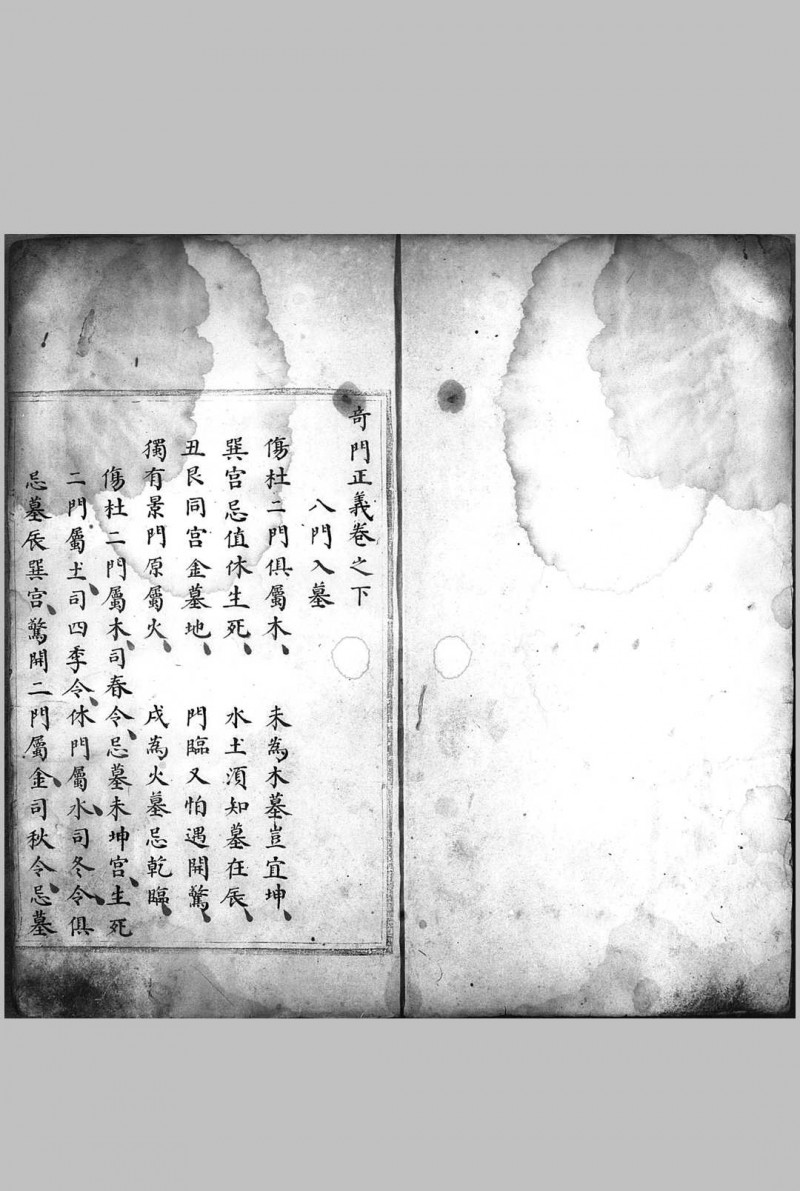 奇門正義卷之下
八門入墓
傷杜二門俱屬木、未為木墓豈宜坤、
巽宮忌值休生死、水土須知墓在辰、
丑艮同宮金墓地、門臨又怕遇開驚、
獨有景門原屬火、戌為火墓忌乾臨、
傷杜二門屬木、司春令、忌墓未坤宮、生死
二門屬土、司四季令、休門屬水、司冬令、俱
忌墓辰巽宮、驚開二門屬金、司秋令、忌墓